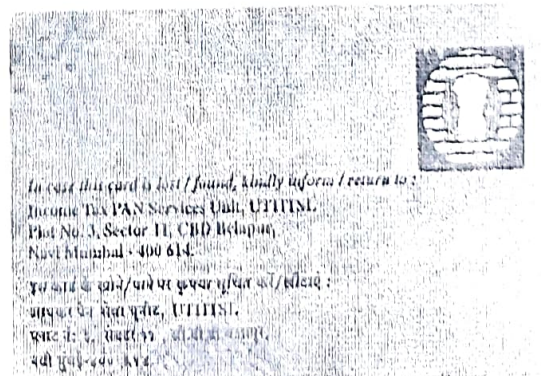 In case this card is lost / found, kindly inform / return to :
Income Tax PAN Services Unit, UTITSL
Plot No. 3, Sector 11, CBD Belapur,
Navi Mumbai - 400 614.
इस कार्ड के खोने/पाने पर कृपया सूचित करें/लौटाएं :
आयकर पैन सेवा यूनीट, UTITSL
प्लाट नं: ३, सेक्टर ११, सी.बी.डी. बेलापुर,
नवी मुंबई-४०० ६१४.